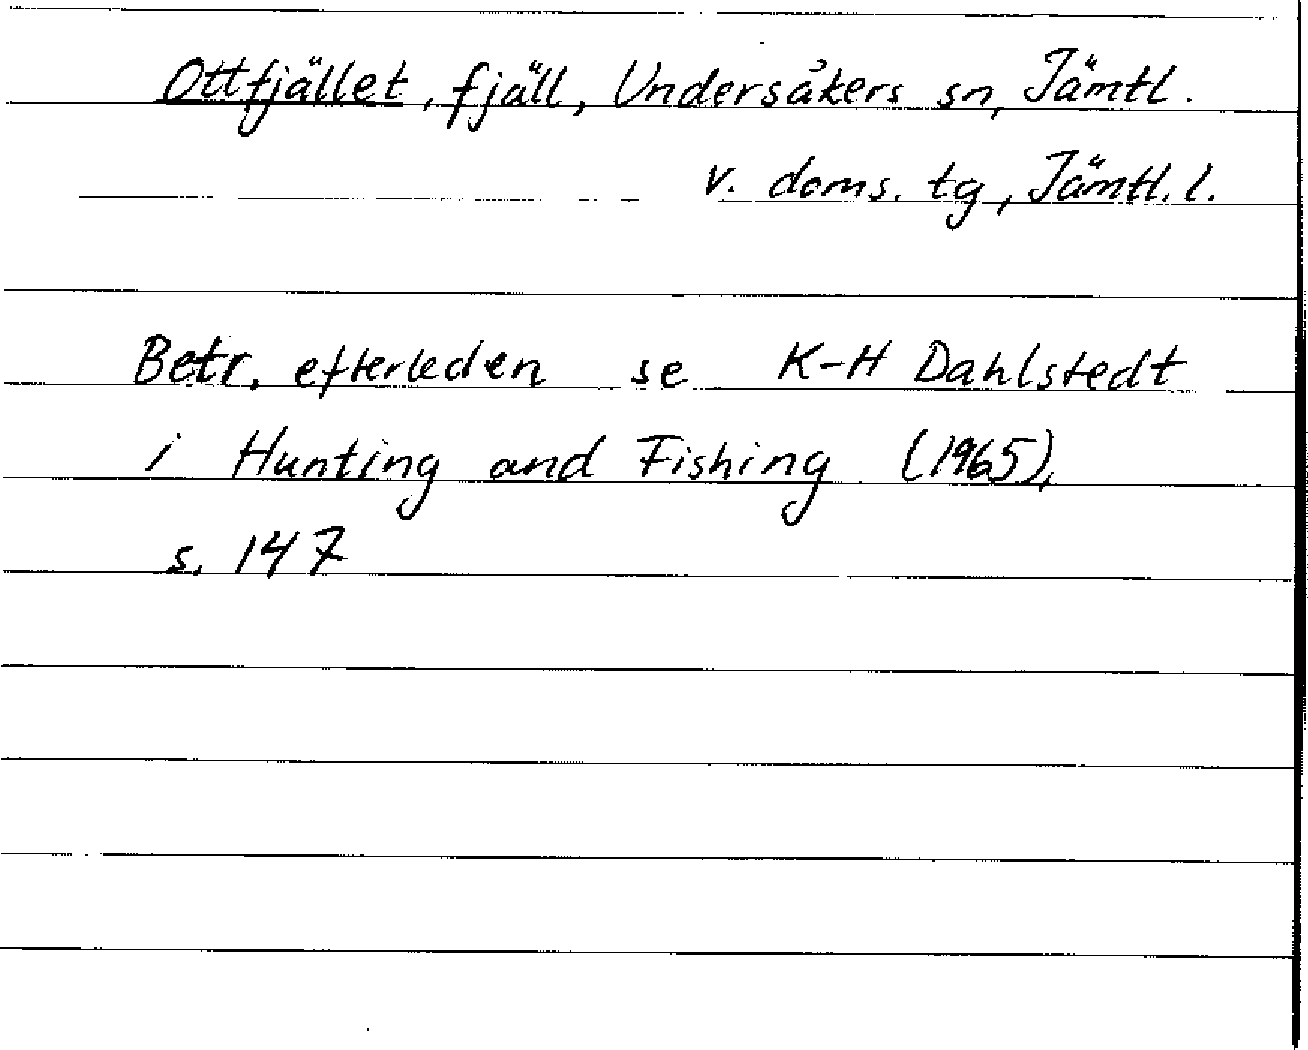 Ottfjället, fjäll, Undersåkers sn, Jämtl.
v. doms. tg, Jämtl. l.
Betr. efterleden se K-H Dahlstedt
i Hunting and Fishing (1965),
s. 147